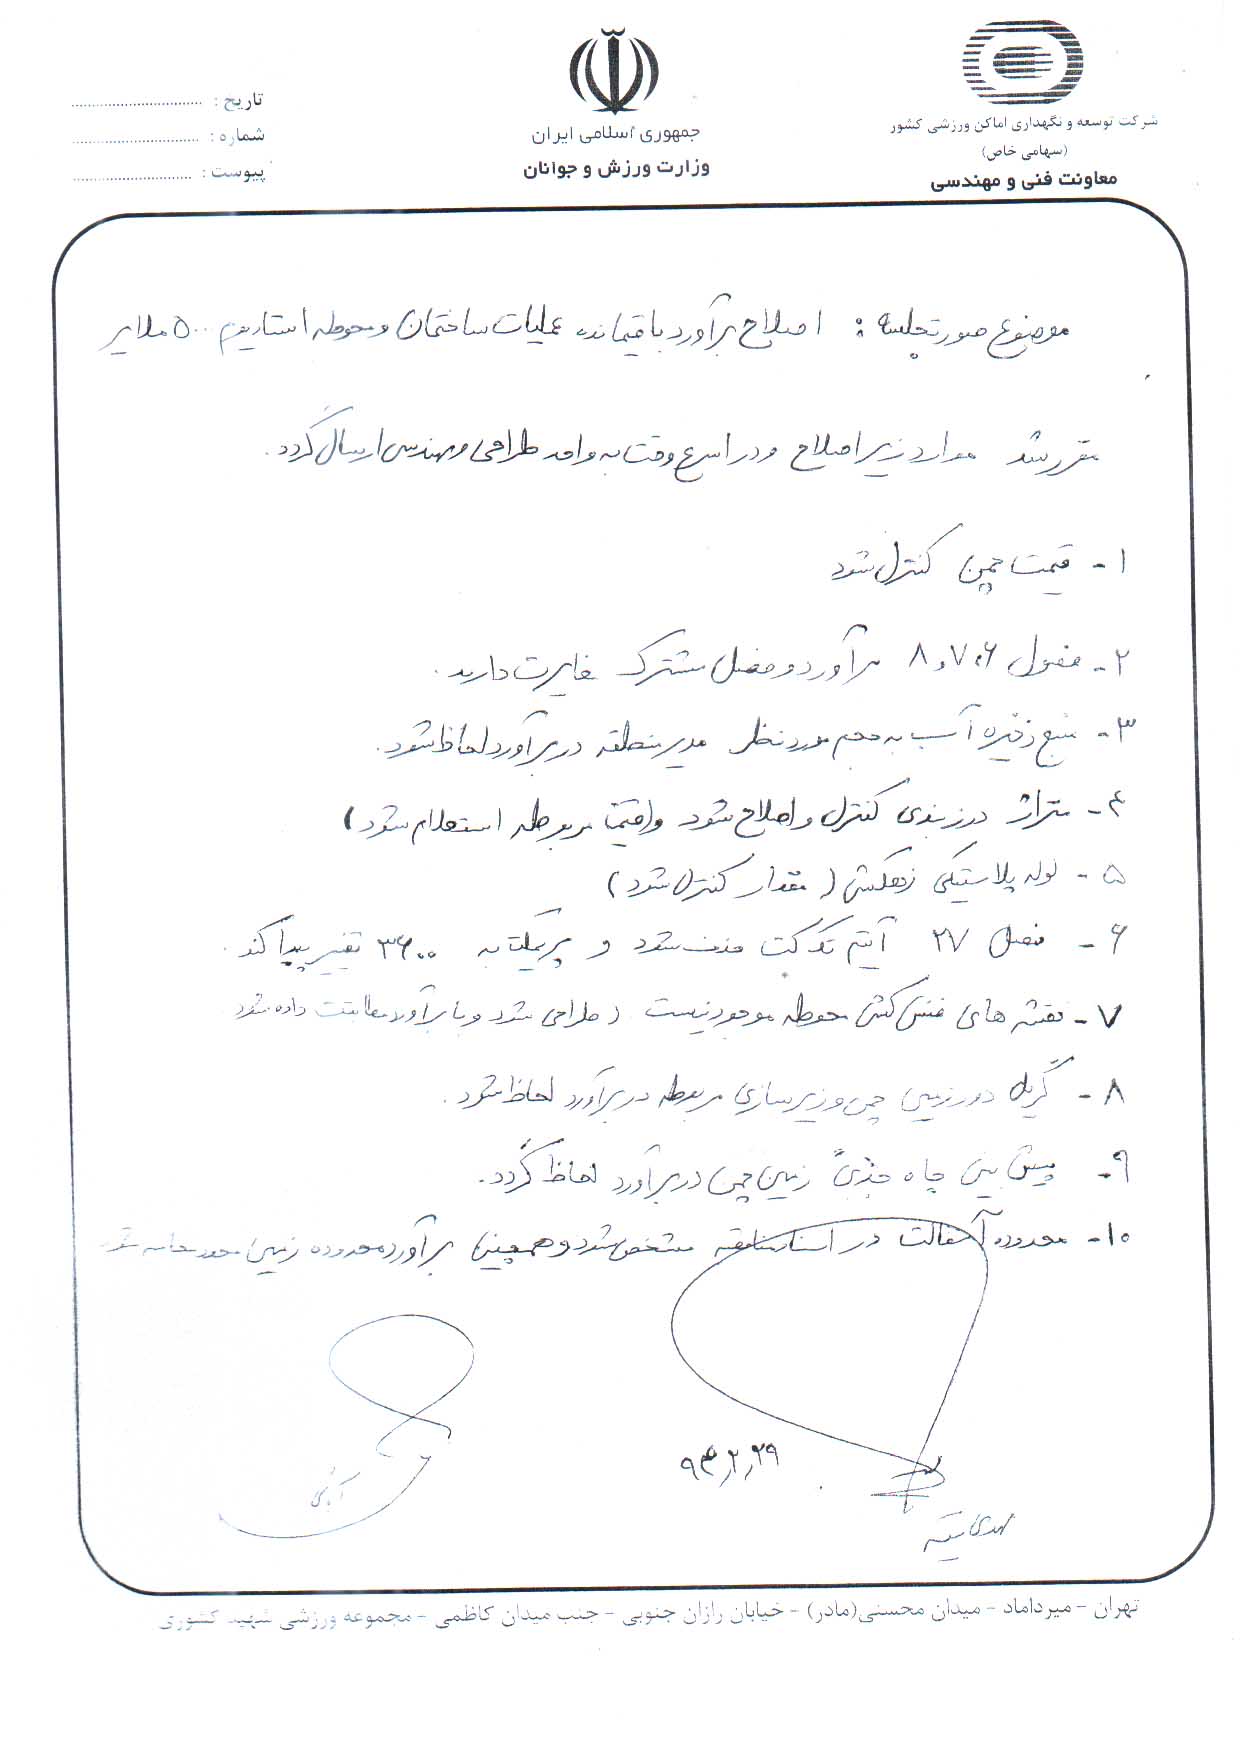 شرکت توسعه و نگهداری اماکن ورزشی کشور
(سهامی خاص)
معاونت فنی و مهندسی
جمهوری اسلامی ایران
وزارت ورزش و جوانان
تاریخ :
شماره :
پیوست :
موضوع صورتجلسه : اصلاح برآورد باقیمانده عملیات ساختمان و محوطه استادیوم ۵۰۰۰ ملایر
مقرر شد موارد زیر اصلاح و در اسرع وقت به واحد طراحی و مهندسی ارسال گردد.
۱- قیمت چمن کنترل شود
۲- فصول ۶،۷ و ۸ برآورد و فصل مشترک مغایرت دارند.
۳- منبع ذخیره آب به حجم مورد نظر مدیر منطقه در برآورد لحاظ شود.
۴- متراژ درزبندی کنترل و اصلاح شود (قیمت مربوطه استعلام شود)
۵- لوله پلاستیکی زهکش (مقدار کنترل شود)
۶- فصل ۲۷ آیتم تک کت حذف شود و پریکت به ۳۶۰۰ تغییر پیدا کند.
۷- نقشه های فنس کشی محوطه موجود نیست (طراحی شود و با برآورد مطابقت داده شود
۸- گریل دور زمین چمن و زیرسازی مربوطه در برآورد لحاظ شود.
۹- پیش بینی چاه جذبی زمین چمن در برآورد لحاظ گردد.
۱۰- محدوده آسفالت در اسناد مناقصه مشخص شود و همچنین برآورد محدوده زمین محاسبه شود
۹۴,۲,۲۹
تهران - میرداماد - میدان محسنی(مادر) - خیابان رازان جنوبی - جنب میدان کاظمی - مجموعه ورزشی شهید کشوری